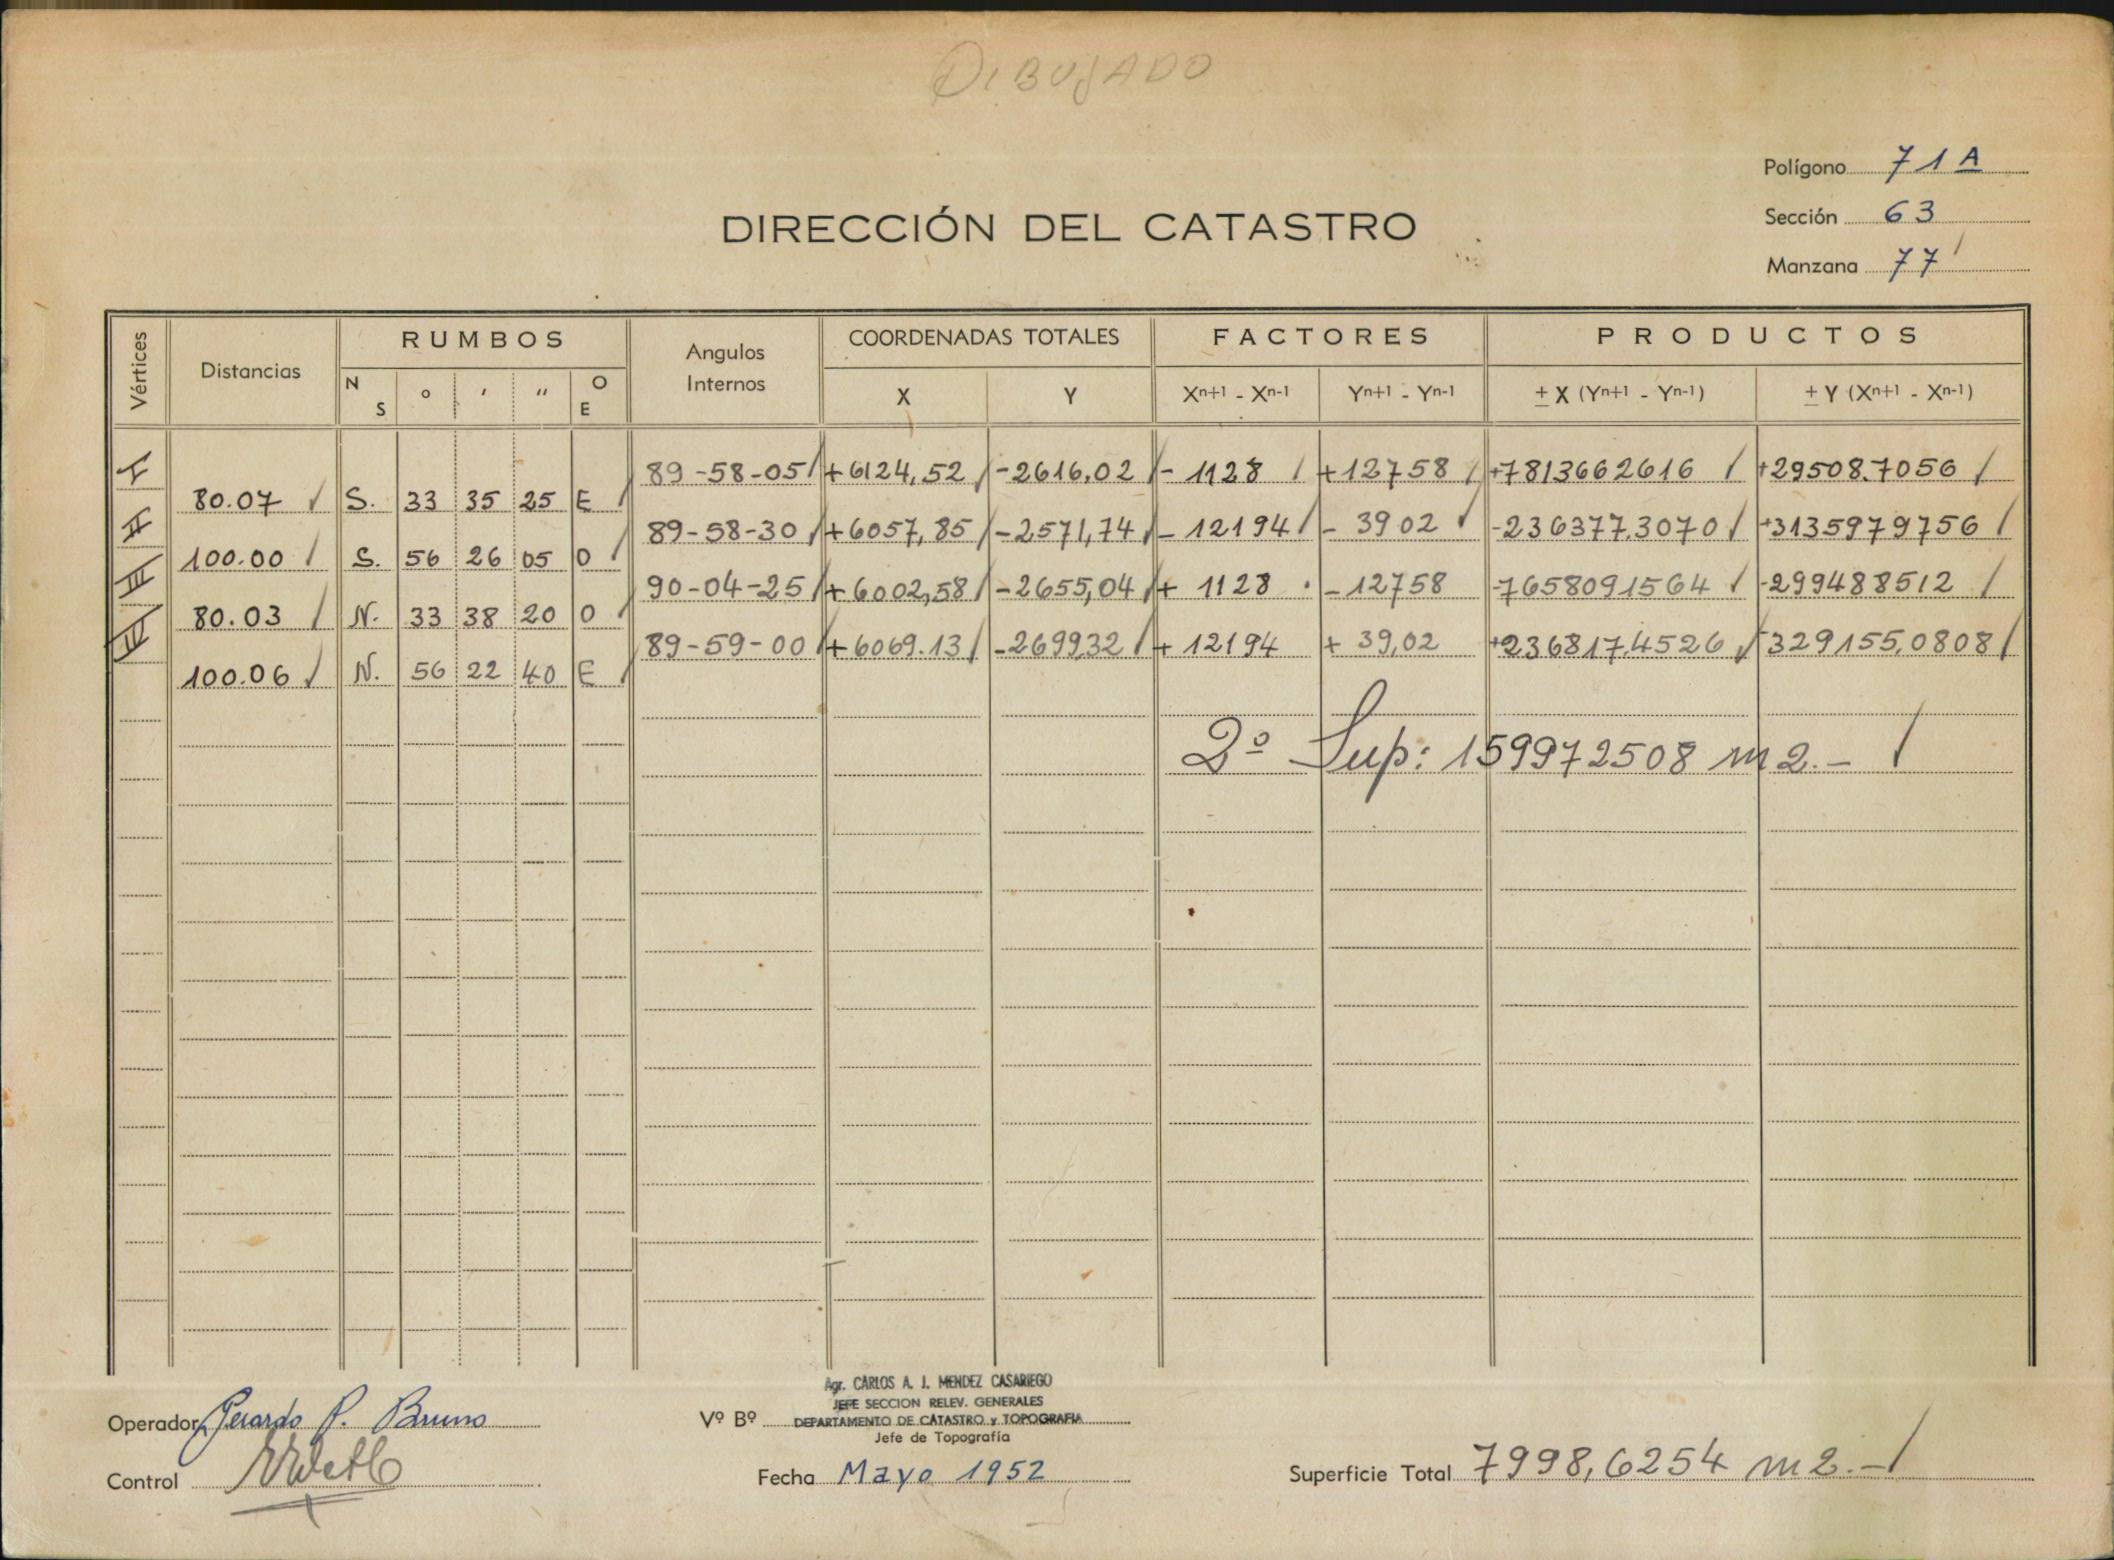 DIBUJADO
Polígono 71 A
DIRECCIÓN DEL CATASTRO
Sección 63
Manzana 77
Vértices
Distancias
RUMBOS
N S ° ′ ″ O E
Angulos Internos
COORDENADAS TOTALES
X Y
FACTORES
Xn+1 - Xn-1 Yn+1 - Yn-1
PRODUCTOS
± X (Yn+1 - Yn-1) ± Y (Xn+1 - Xn-1)
I 89-58-05 +6124,52 -2616,02 - 1128 +12758 +7813662616 +29508.7056
80.07 S. 33 35 25 E
II 89-58-30 +6057,85 -2571,74 - 12194 - 3902 -236377.3070 +3135979756
100.00 S. 56 26 05 O
III 90-04-25 +6002,58 -2655,04 + 1128 -12758 -7658091564 -299488512
80.03 N. 33 38 20 O
IV 89-59-00 +6069.13 -269932 + 12194 + 39,02 +236817.4526 -329155,0808
100.06 N. 56 22 40 E
2º Sup: 159972508 m2.-
Operador Gerardo P. Bruno
Vº Bº
Agr. CARLOS A. J. MENDEZ CASARIEGO
JEFE SECCION RELEV. GENERALES
DEPARTAMENTO DE CATASTRO y TOPOGRAFIA
Jefe de Topografía
Control
Fecha Mayo 1952
Superficie Total 7998,6254 m2.-